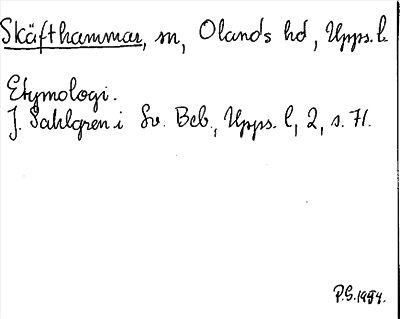 Skäfthammar, sn, Olands hd, Upps. l.
Etymologi.
J. Sahlgren i Sv. Beb., Upps. l, 2, s. 71.
P.G. 1954.